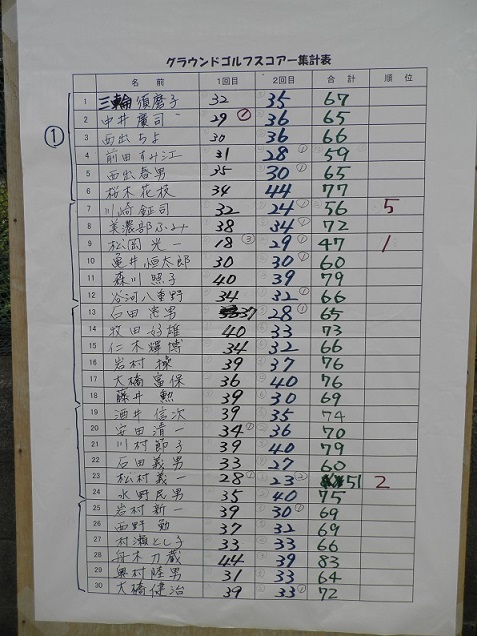 グラウンドゴルフスコアー集計表
名前 1回目 2回目 合計 順位
①
1 三輪須磨子 32 35 67
2 中井廣司 29 ① 36 65
3 西出ちよ 30 36 66
4 前田すみ江 31 28 ① 59
5 西出春男 35 30 ① 65
6 桜木花枝 34 44 77
7 川崎鉦司 32 24 ① 56 5
8 美濃部ふみ 38 34 ① 72
9 松岡光一 18 ③ 29 ① 47 1
10 亀井恒太郎 30 30 ① 60
11 森川照子 40 39 79
12 谷河八重野 34 32 ① 66
13 石田 男 37 28 ① 65
14 牧田好雄 40 33 73
15 仁木輝博 34 32 66
16 岩村操 39 37 76
17 大橋富保 36 40 76
18 藤井勲 39 30 69
19 酒井信次 39 35 74
20 安田清一 34 ① 36 70
21 川村節子 39 40 79
22 石田義男 33 27 60
23 松村義一 28 ① 23 ② 51 2
24 水野民男 35 40 75
25 岩村新一 39 30 ① 69
26 西野勉 37 32 69
27 村瀬とし子 33 33 66
28 舟木刀蔵 44 39 83
29 奥村陸男 31 33 64
30 大橋健治 39 33 ① 72